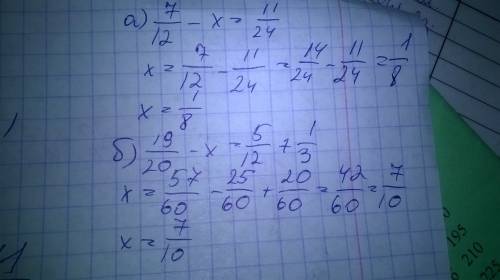 а) 7/12 - x = 11/24
x = 7/12 - 11/24 = 14/24 - 11/24 = 1/8
x = 1/8
б) 19/20 - x = 5/12 + 1/3
x = 57/60 - 25/60 + 20/60 = 42/60 = 7/10
x = 7/10
195
200